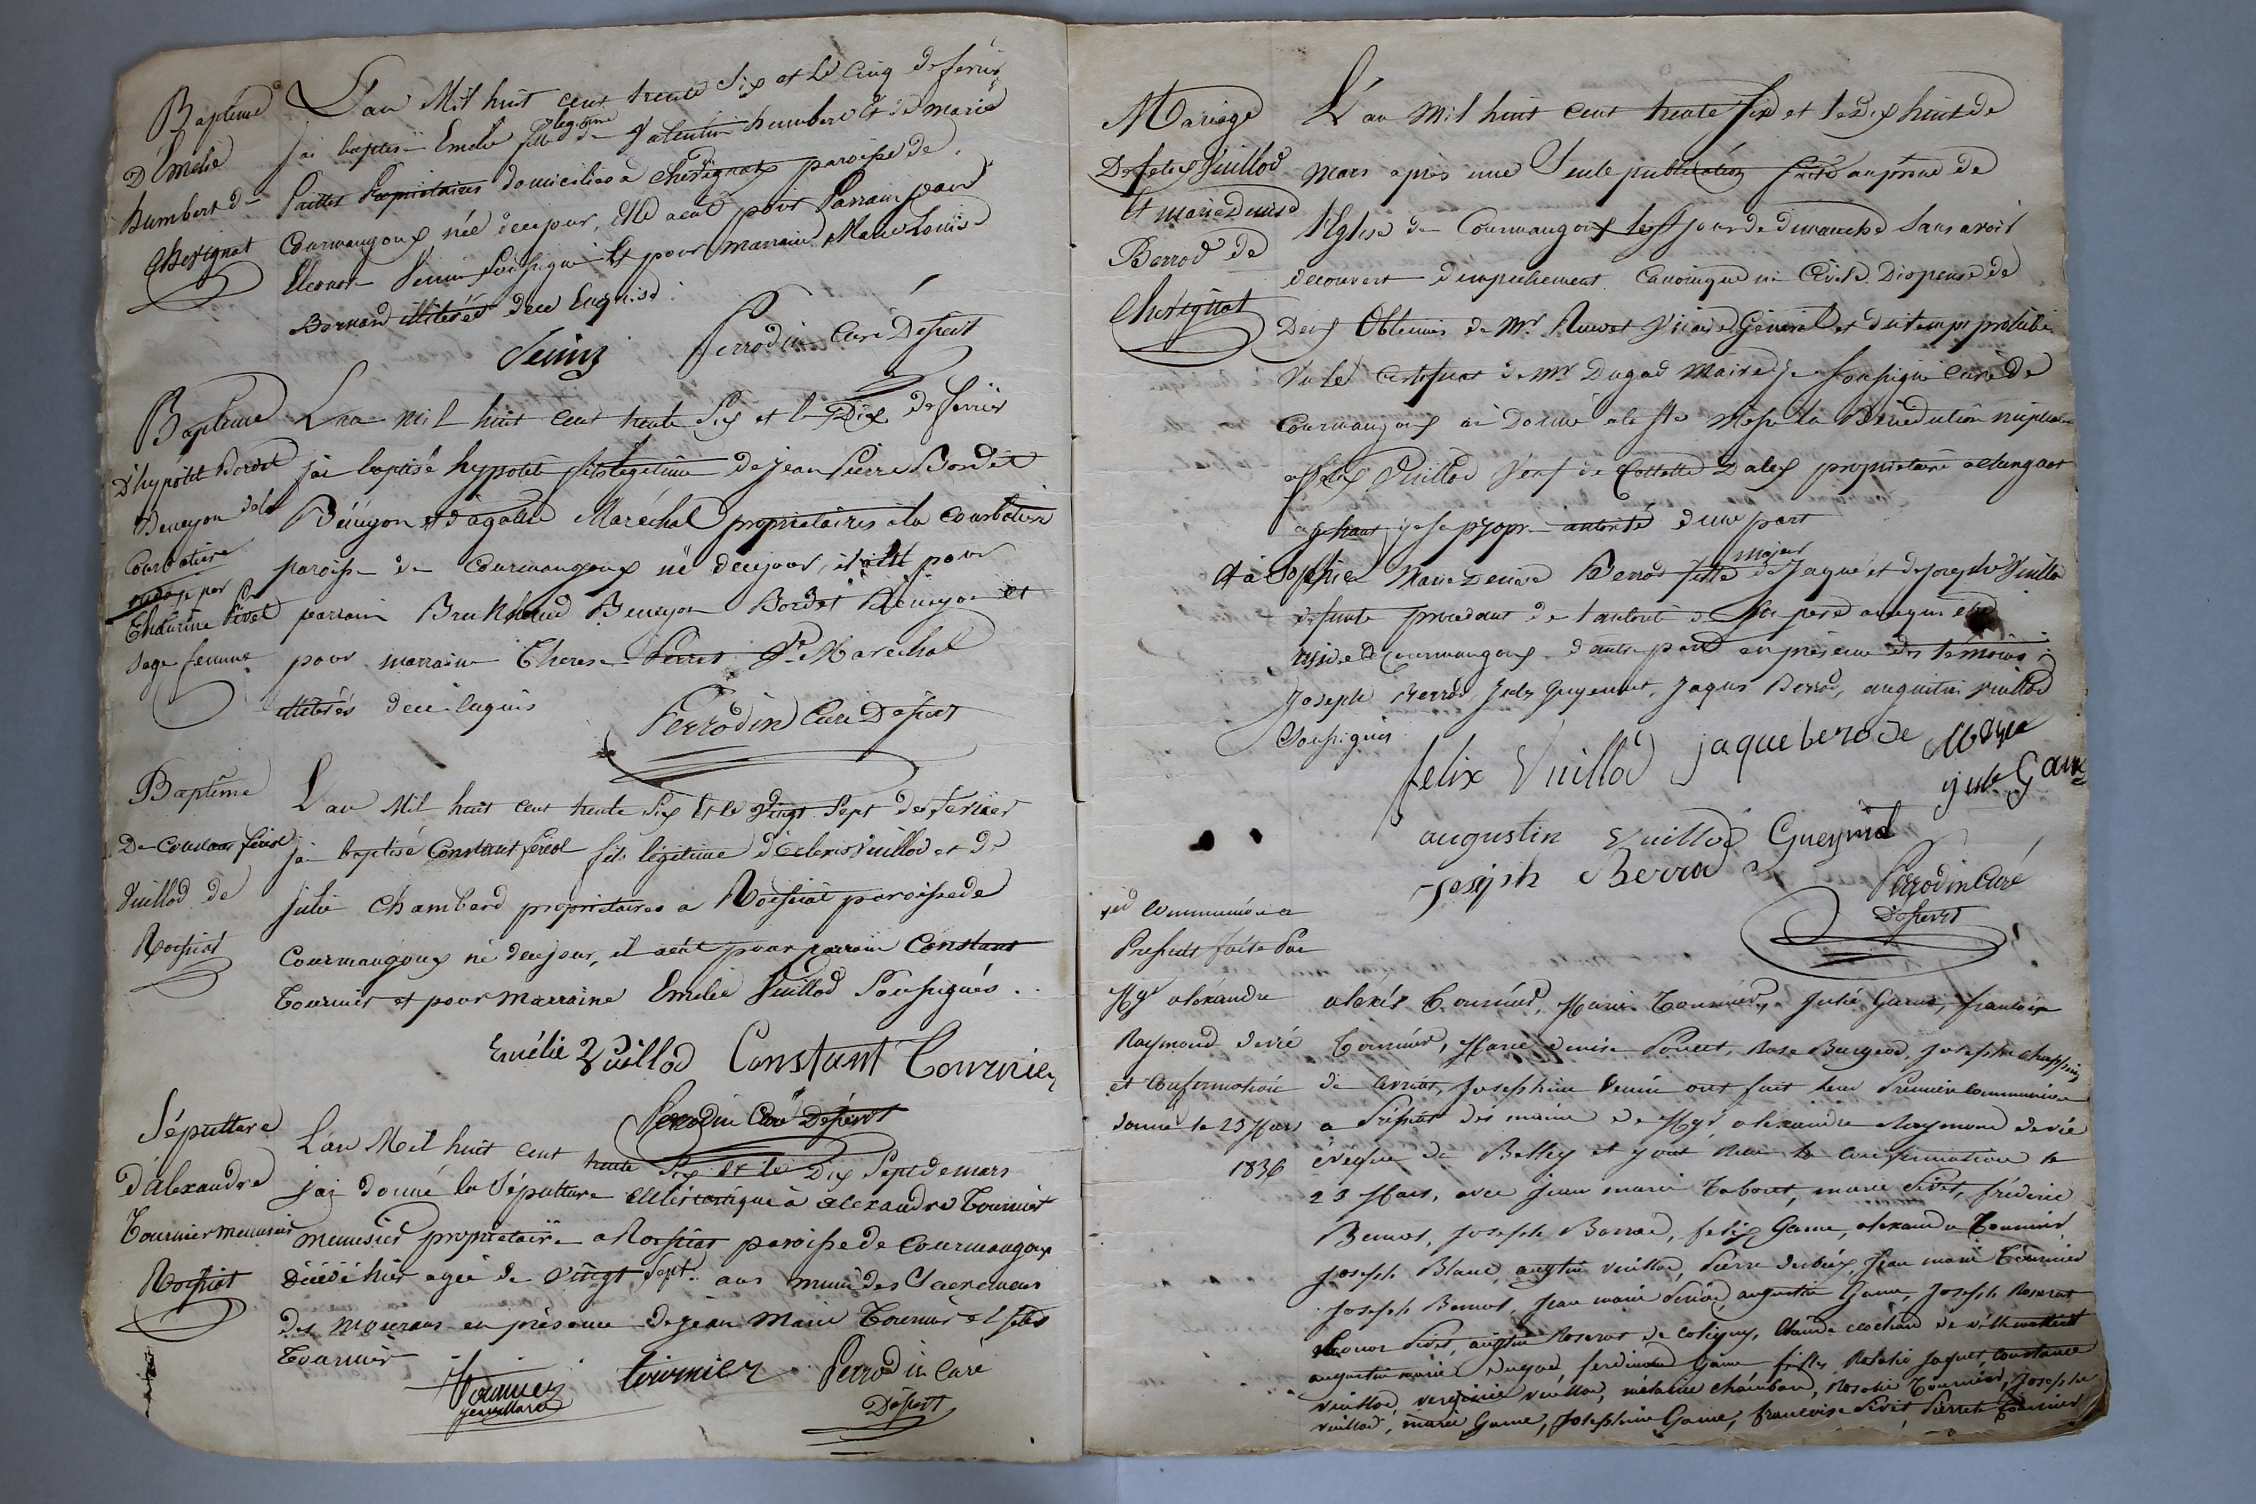 Baptême
D'Emelie
humbert de
Chevignat
L'an Mil huit cent trente Six et le Cinq de fevrier
j'ai baptisé Emelie fille legitime de Valentin humbert et de marie
propriétaires domiciliés à Chevignat paroisse de
Courmangoux née de ce jour, Elle a eut pour Parrain jean
Eleonor soussigné et pour marraine Marie Louise
Bernard illiterés de ce Enquise.
Perrodin Curé Desservt
Baptême
D'hypolit Bordet
Beneyon de la
Courbatiere
ondoyé par
Sage femme
L'an mil huit cent trente Six et le Dix de fevrier
j'ai baptisé hypolite fils legitime de jean Pierre Bordet
Beneyon et d'agathe Maréchal propriétaires à la Courbatiere
paroisse de Courmangoux né de ce jour, il a eut pour
parrain Beneyon Bordet Beneyon et
pour marraine Therese Maréchal
illiterés de ce enquis
Perrodin Curé Desservt
Baptême
De Constant féréol
Vuillod de
Rossiat
L'an Mil huit cent trente Six et le Vingt Sept de fevrier
j'ai baptisé Constant féréol fils légitime d'alexis Vuillod et de
julie Chambard propriétaires a Rossiat paroisse de
Courmangoux né de ce jour, il a eut pour parrain Constant
Tournier et pour marraine Emelie Vuillod Soussignés.
Emélie Vuillod Constant Tournier
Perrodin Curé Desservt
Sépulture
d'alexandre
Tournier menuisier
Rossiat
L'an Mil huit cent trente Six et le Dix Sept de mars
j'ai donné la Sépulture ecclésiastique à alexandre Tournier
menuisier propriétaire a Rossiat paroisse de Courmangoux
Décédé hier agé de vingt Sept ans muni des Sacremens
des mourans en présence de jean Marie Tournier et
Tournier
Tournier tournier Perrodin Curé
Desservt
Mariage
De felix Vuillod
et marie Denise
Berrod de
Chevignat
L'an Mil huit cent trente Six et le Dix huit de
Mars après une Seule publication faite au prône de
l'Eglise de Courmangoux jour de dimanche Sans avoir
découvert d'empechement Canonique ni Civile Dispense de
Deux Obtenus de Mr Ruivet Vicaire Général et du temps prohibé
Vu le Certificat de Mr Dugad Maire je Soussigné Curé de
Courmangoux ai Donné a la Ste Messe la Bénédiction nuptiale
a felix Vuillod Veuf de Collette Dalex propriétaire a Chevignat
agissant de sa propre autorité d'une part
et à Sophie Marie Denise Berrod fille majeur de Jaque et de josephe Vuillod
défunte procédant de l'autorité de son pere avec qui elle
réside à Courmangoux d'autre part en présence des témoins
Joseph Berrod, Jules Gueynard, Jaques Berrod, augustin Vuillod
Soussignés
felix Vuillod jaque berode
augustin Vuillod Gueynard
Joseph Berrod
Perrodin Curé
Desservt
communion a
Pressiat faite Par
Mgr alexandre
Raymond devie
et Confirmation
donné le 23 Mars
1836
alexis Tournier, Marie Tournier, Julie Game, françoise
Tournier, Marie denise Poncet, Rose Burgeod, Josephe
de Joséphine ont fait leur Premiere Communion
a Préssiat des mains de Mgr alexandre Raymond devie
évêque de Belley et y ont reçu la Confirmation le
23 Mars, avec Jean marie marie Pivet, fréderic
Bernot, Joseph Berrod, felix Game, alexandre Tournier,
Joseph Blanc, augtin vuillod, Pierre Jean marie Tournier
Joseph Bernot, Jean marie augustin Game, Joseph
augtin de Coligny, Claude de villemotier
augustin marie Dugad, ferdinand Game Constance
vuillod, verginie vuillod, mélanie chambard, Rosalie Tournier, Josephe
vuillod, marie Game, Joséphine Game, françoise Pivet, Pierrette Tournier